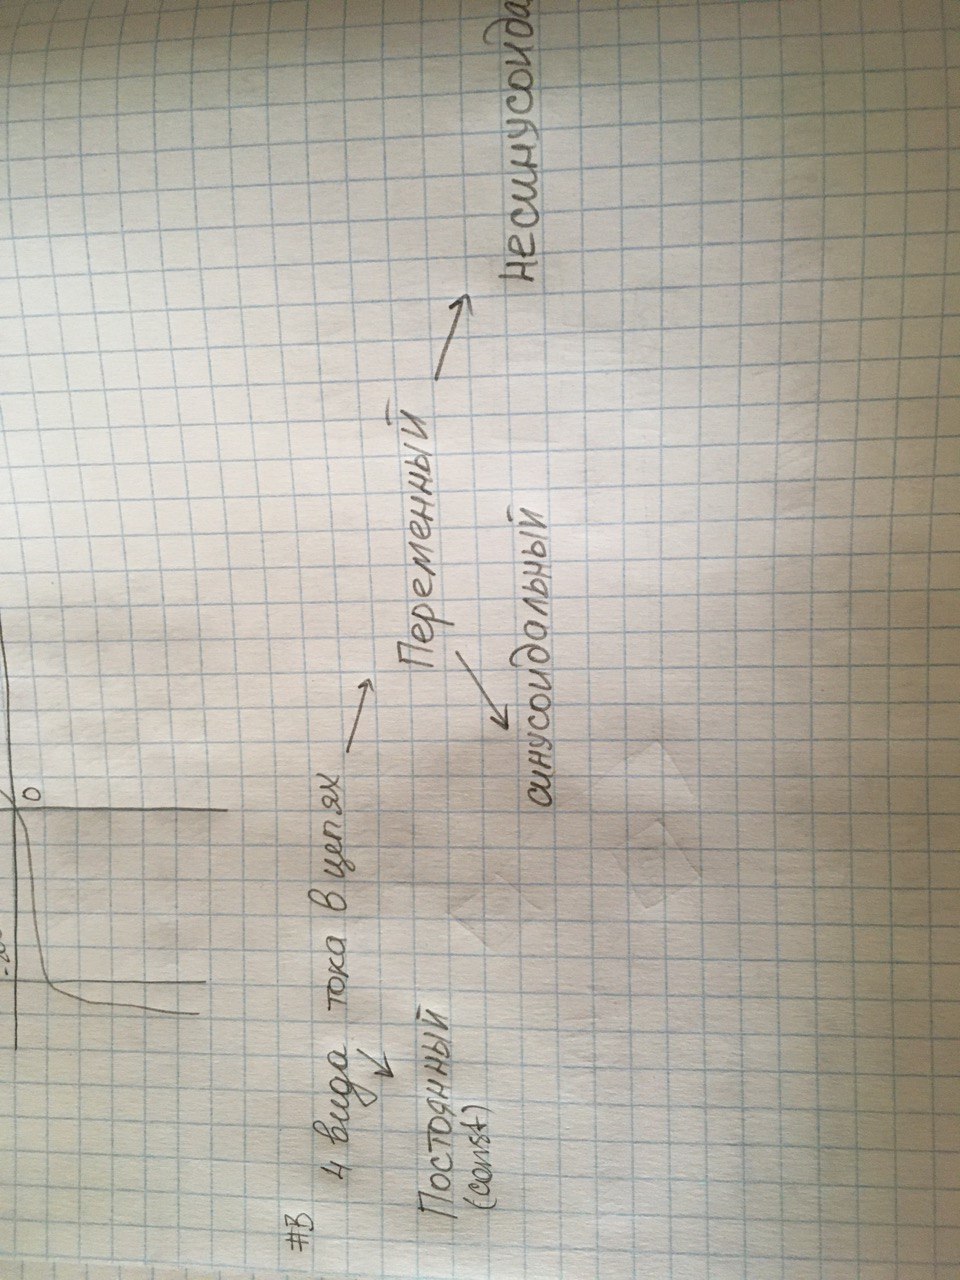 0
#В
4 вида тока в цепях
Постоянный
(const)
Переменный
синусоидальный
несинусоида